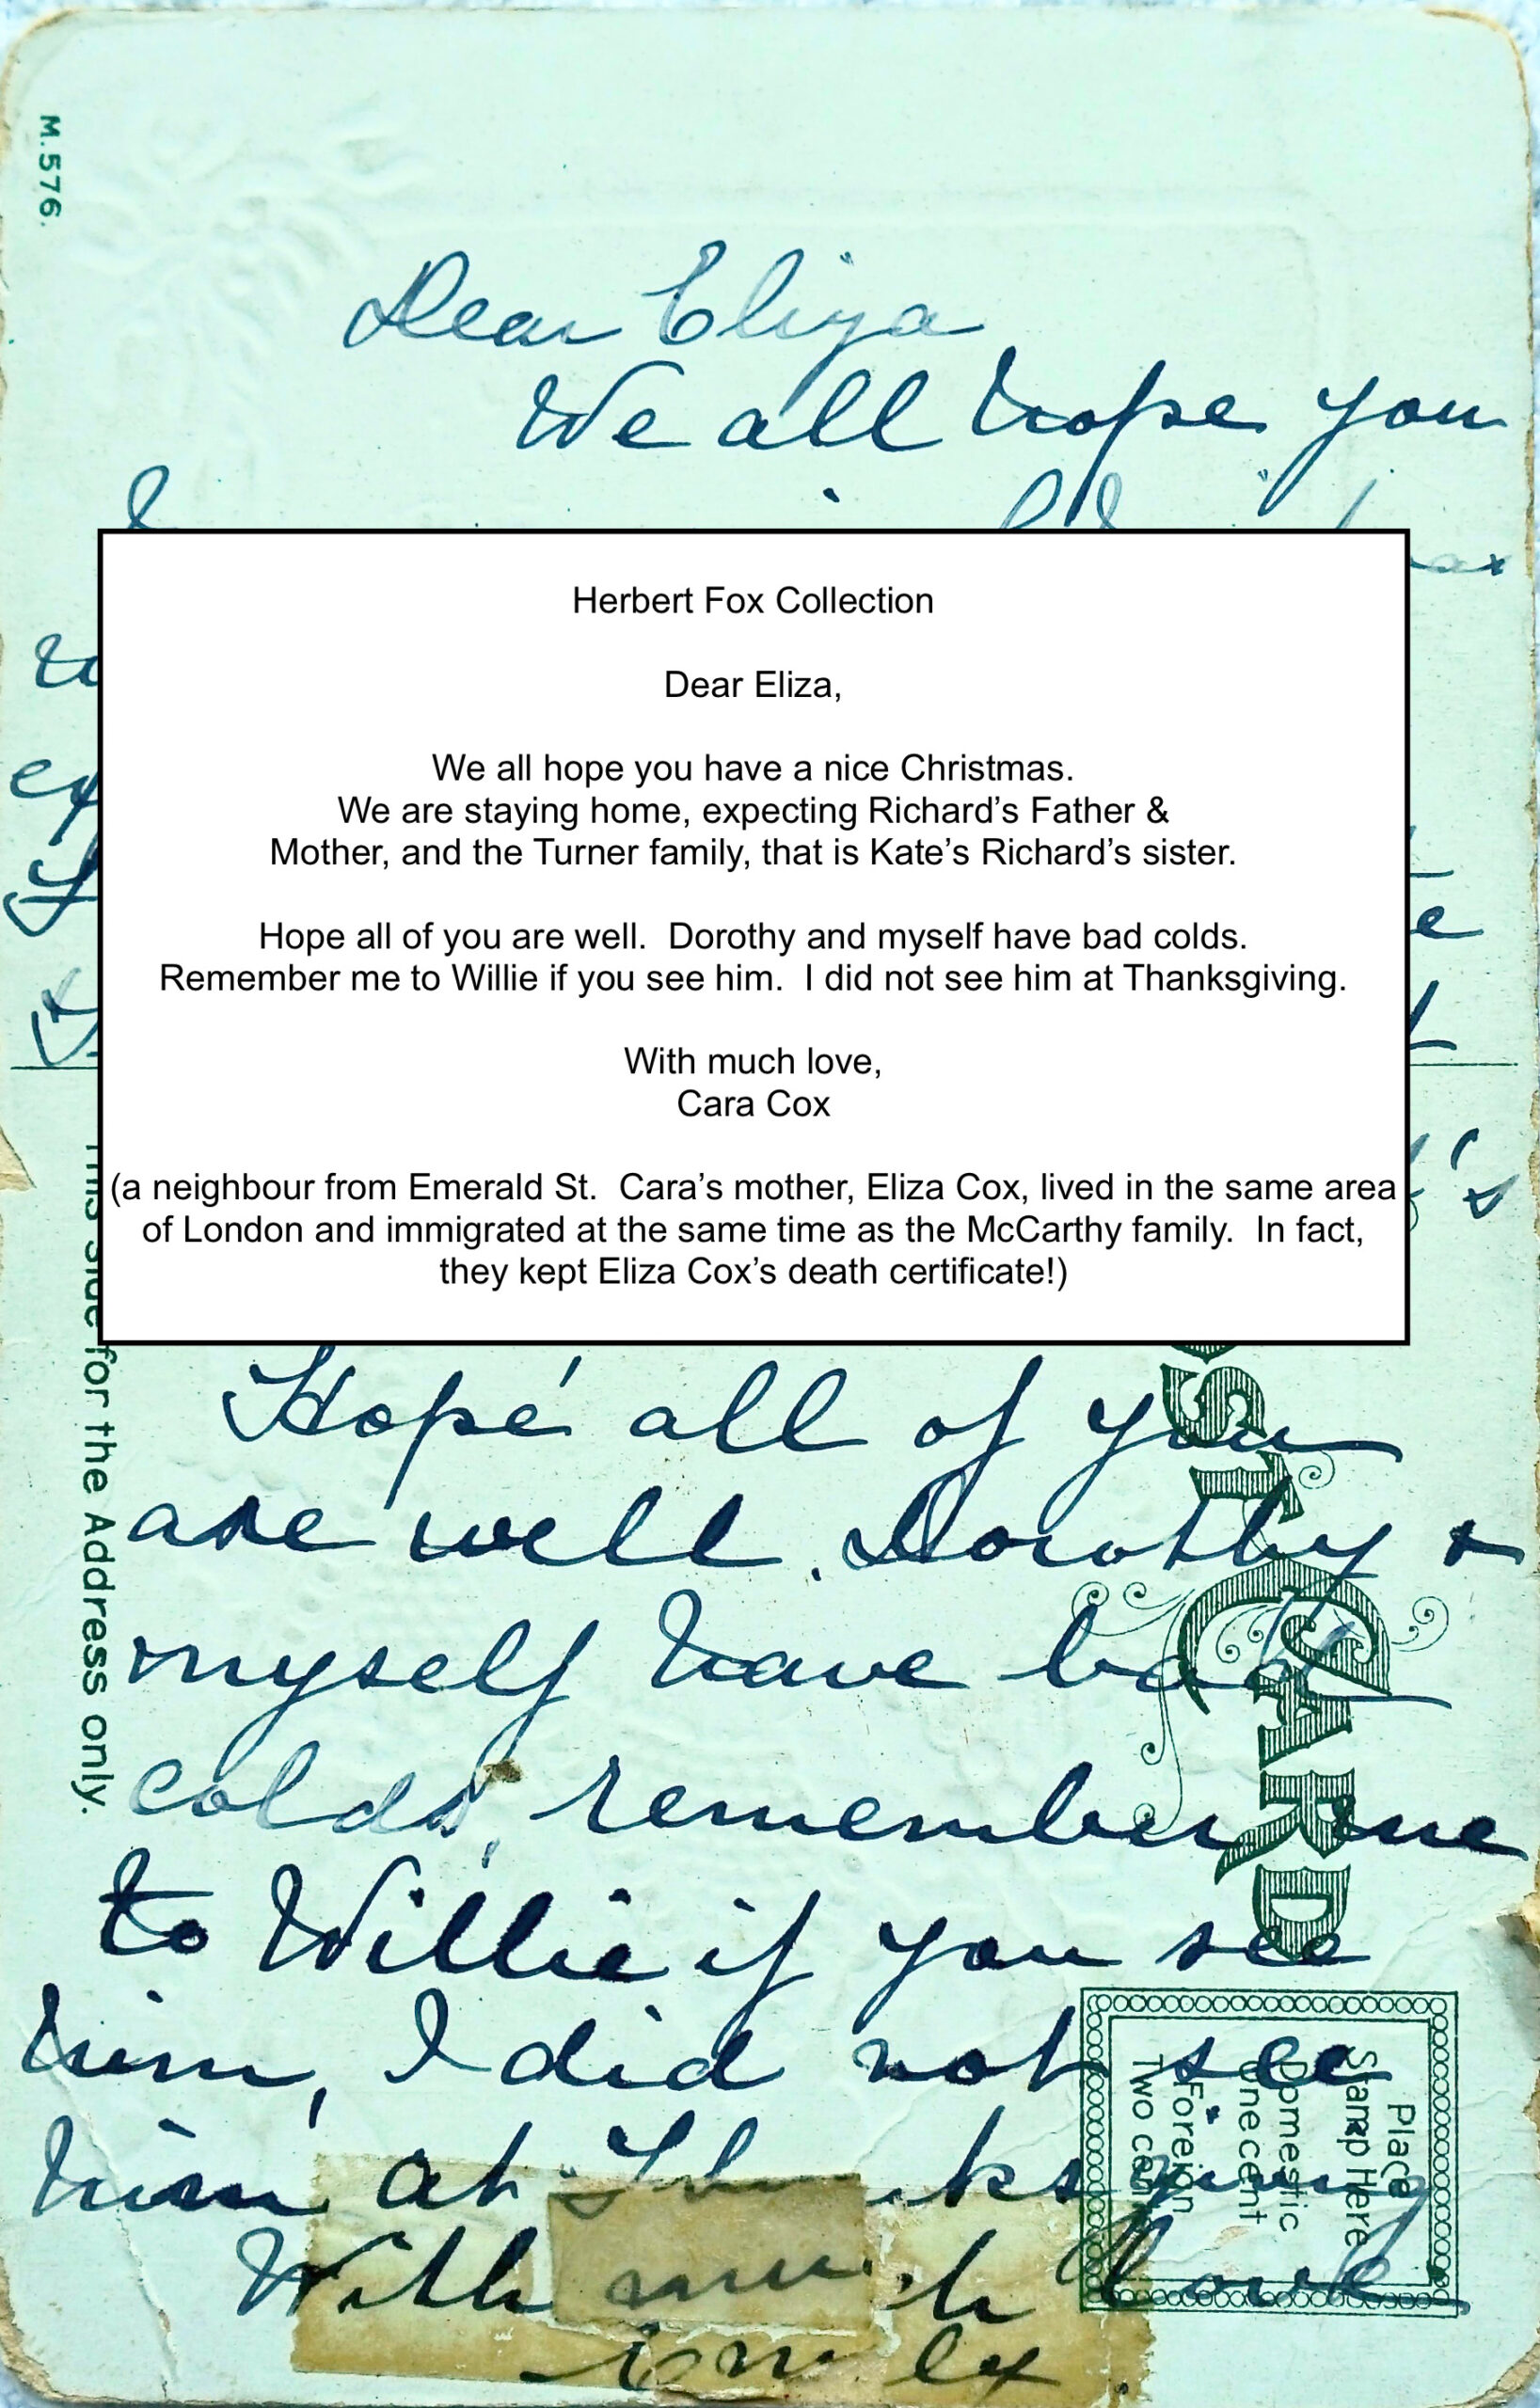 M.576.
Dear Eliza
We all hope you
Herbert Fox Collection
Dear Eliza,
We all hope you have a nice Christmas.
We are staying home, expecting Richard’s Father &
Mother, and the Turner family, that is Kate’s Richard’s sister.
Hope all of you are well.  Dorothy and myself have bad colds.
Remember me to Willie if you see him.  I did not see him at Thanksgiving.
With much love,
Cara Cox
(a neighbour from Emerald St.  Cara’s mother, Eliza Cox, lived in the same area
of London and immigrated at the same time as the McCarthy family.  In fact,
they kept Eliza Cox’s death certificate!)
This side for the Address only.
POST CARD
Hope all of you
are well. Dorothy &
myself have bad
colds, remember me
to Willie if you see
him, I did not see
him at Thanksgiving
With much love
Place
Stamp Here
Domestic
One cent
Foreign
Two cent